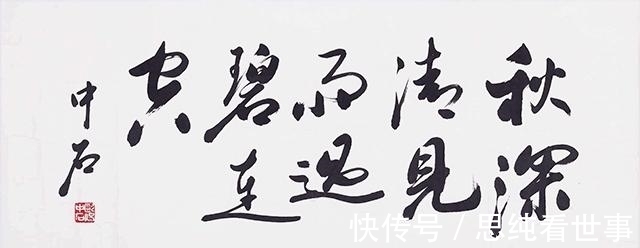 秋深
清見
雨過
碧連
空
中石
快传号 / 思纯看世事